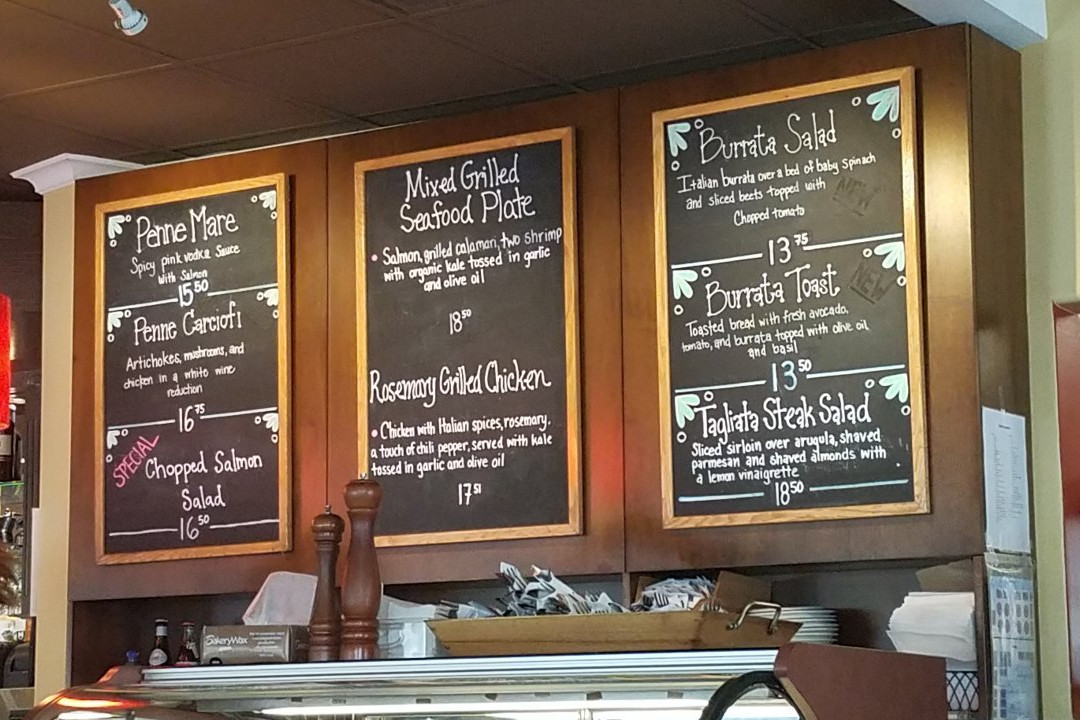 Penne Mare
Spicy pink vodka Sauce
with Salmon
15.50
Penne Carciofi
Artichokes, mushrooms, and
chicken in a white wine
reduction
16.75
SPECIAL
Chopped Salmon
Salad
16.50
Mixed Grilled
Seafood Plate
• Salmon, grilled calamari, two shrimp
with organic kale tossed in garlic
and olive oil
18.50
Rosemary Grilled Chicken
• Chicken with Italian spices, rosemary,
a touch of chili pepper, served with kale
tossed in garlic and olive oil
17.51
Burrata Salad
Italian burrata over a bed of baby spinach
and sliced beets topped with
Chopped tomato
NEW
13.75
Burrata Toast
NEW
Toasted bread with fresh avocado,
tomato, and burrata topped with olive oil
and basil
13.50
Tagliata Steak Salad
Sliced sirloin over arugula, shaved
parmesan and shaved almonds with
a lemon vinaigrette
18.50
BakeryWax